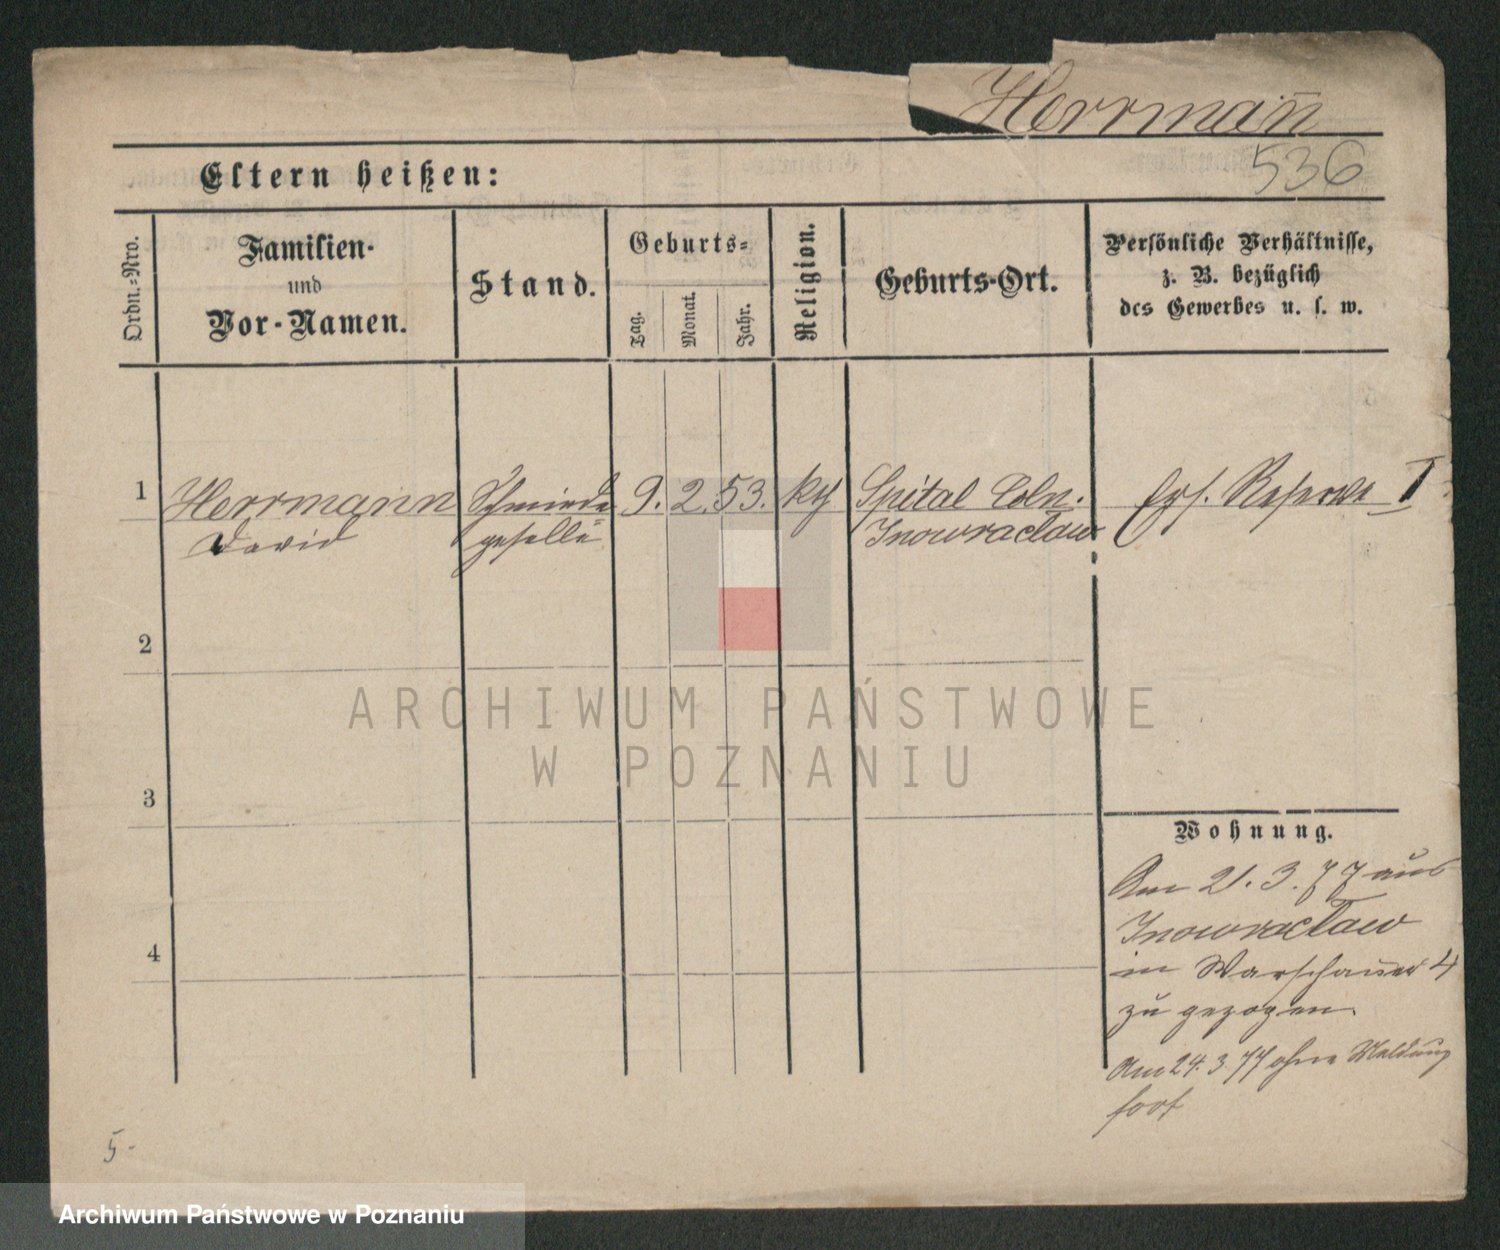 Herrmañ
536
Eltern heißen:
Ordn.-Nro.
Familien-
und
Vor-Namen.
Stand.
Geburts-
Tag.
Monat.
Jahr.
Religion.
Geburts-Ort.
Persönliche Verhältnisse,
z. B. bezüglich
des Gewerbes u. s. w.
1
Herrmann
David
Schmiede
geselle
9. 2. 53.
Spital Coln.
Inowracław
Ers. Reserve I
2
3
4
Wohnung.
Am 21. 3. 77 aus
Inowracław
in Warschauer 4
zu gezogen.
Am 24. 3. 77 ohne Meldung
fort
5.
ARCHIWUM PAŃSTWOWE
W POZNANIU
Archiwum Państwowe w Poznaniu